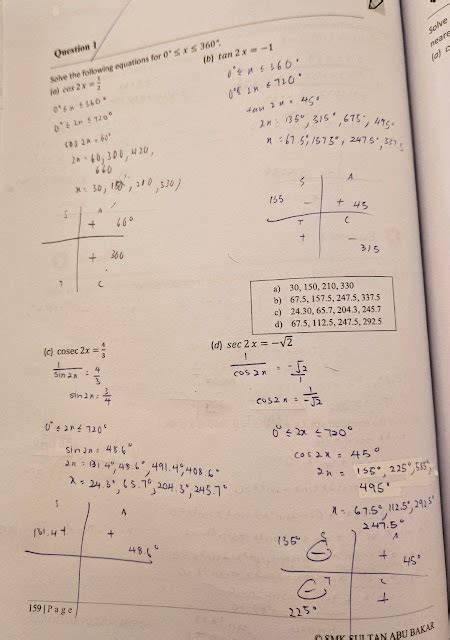 Question 1
Solve the following equations for 0° ≤ x ≤ 360°.
(a) cos 2x = 1/2
0° ≤ x ≤ 360°
0° ≤ 2x ≤ 720°
cos 2x = 60°
2x = 60, 300, 420,
660
x = 30, 150, 210, 330
S A
+ 60°
+ 300
T C
(b) tan 2x = -1
0° ≤ x ≤ 360°
0° ≤ 2x ≤ 720°
tan 2x = 45°
2x = 135°, 315°, 675°, 495°
x = 67.5°, 157.5°, 247.5°, 337.5
S A
135 - + 45
T C
+ -
315
a) 30, 150, 210, 330
b) 67.5, 157.5, 247.5, 337.5
c) 24.30, 65.7, 204.3, 245.7
d) 67.5, 112.5, 247.5, 292.5
(c) cosec 2x = 4/3
1/sin 2x = 4/3
sin 2x = 3/4
0° ≤ 2x ≤ 720°
sin 2x = 48.6°
2x = 131.4°, 48.6°, 491.4°, 408.6°
x = 24.3°, 65.7°, 204.3°, 245.7°
S A
131.4 + +
48.6°
(d) sec 2x = -√2
1/cos 2x = -√2/1
cos 2x = 1/-√2
0° ≤ 2x ≤ 720°
cos 2x = 45°
2x = 135°, 225°, 585°,
495°
x = 67.5°, 112.5°, 292.5°
247.5°
135° S A
- + 45°
- T C
+
225°
159 | Page
© SMK SULTAN ABU BAKAR
Solve
neare
(a) c